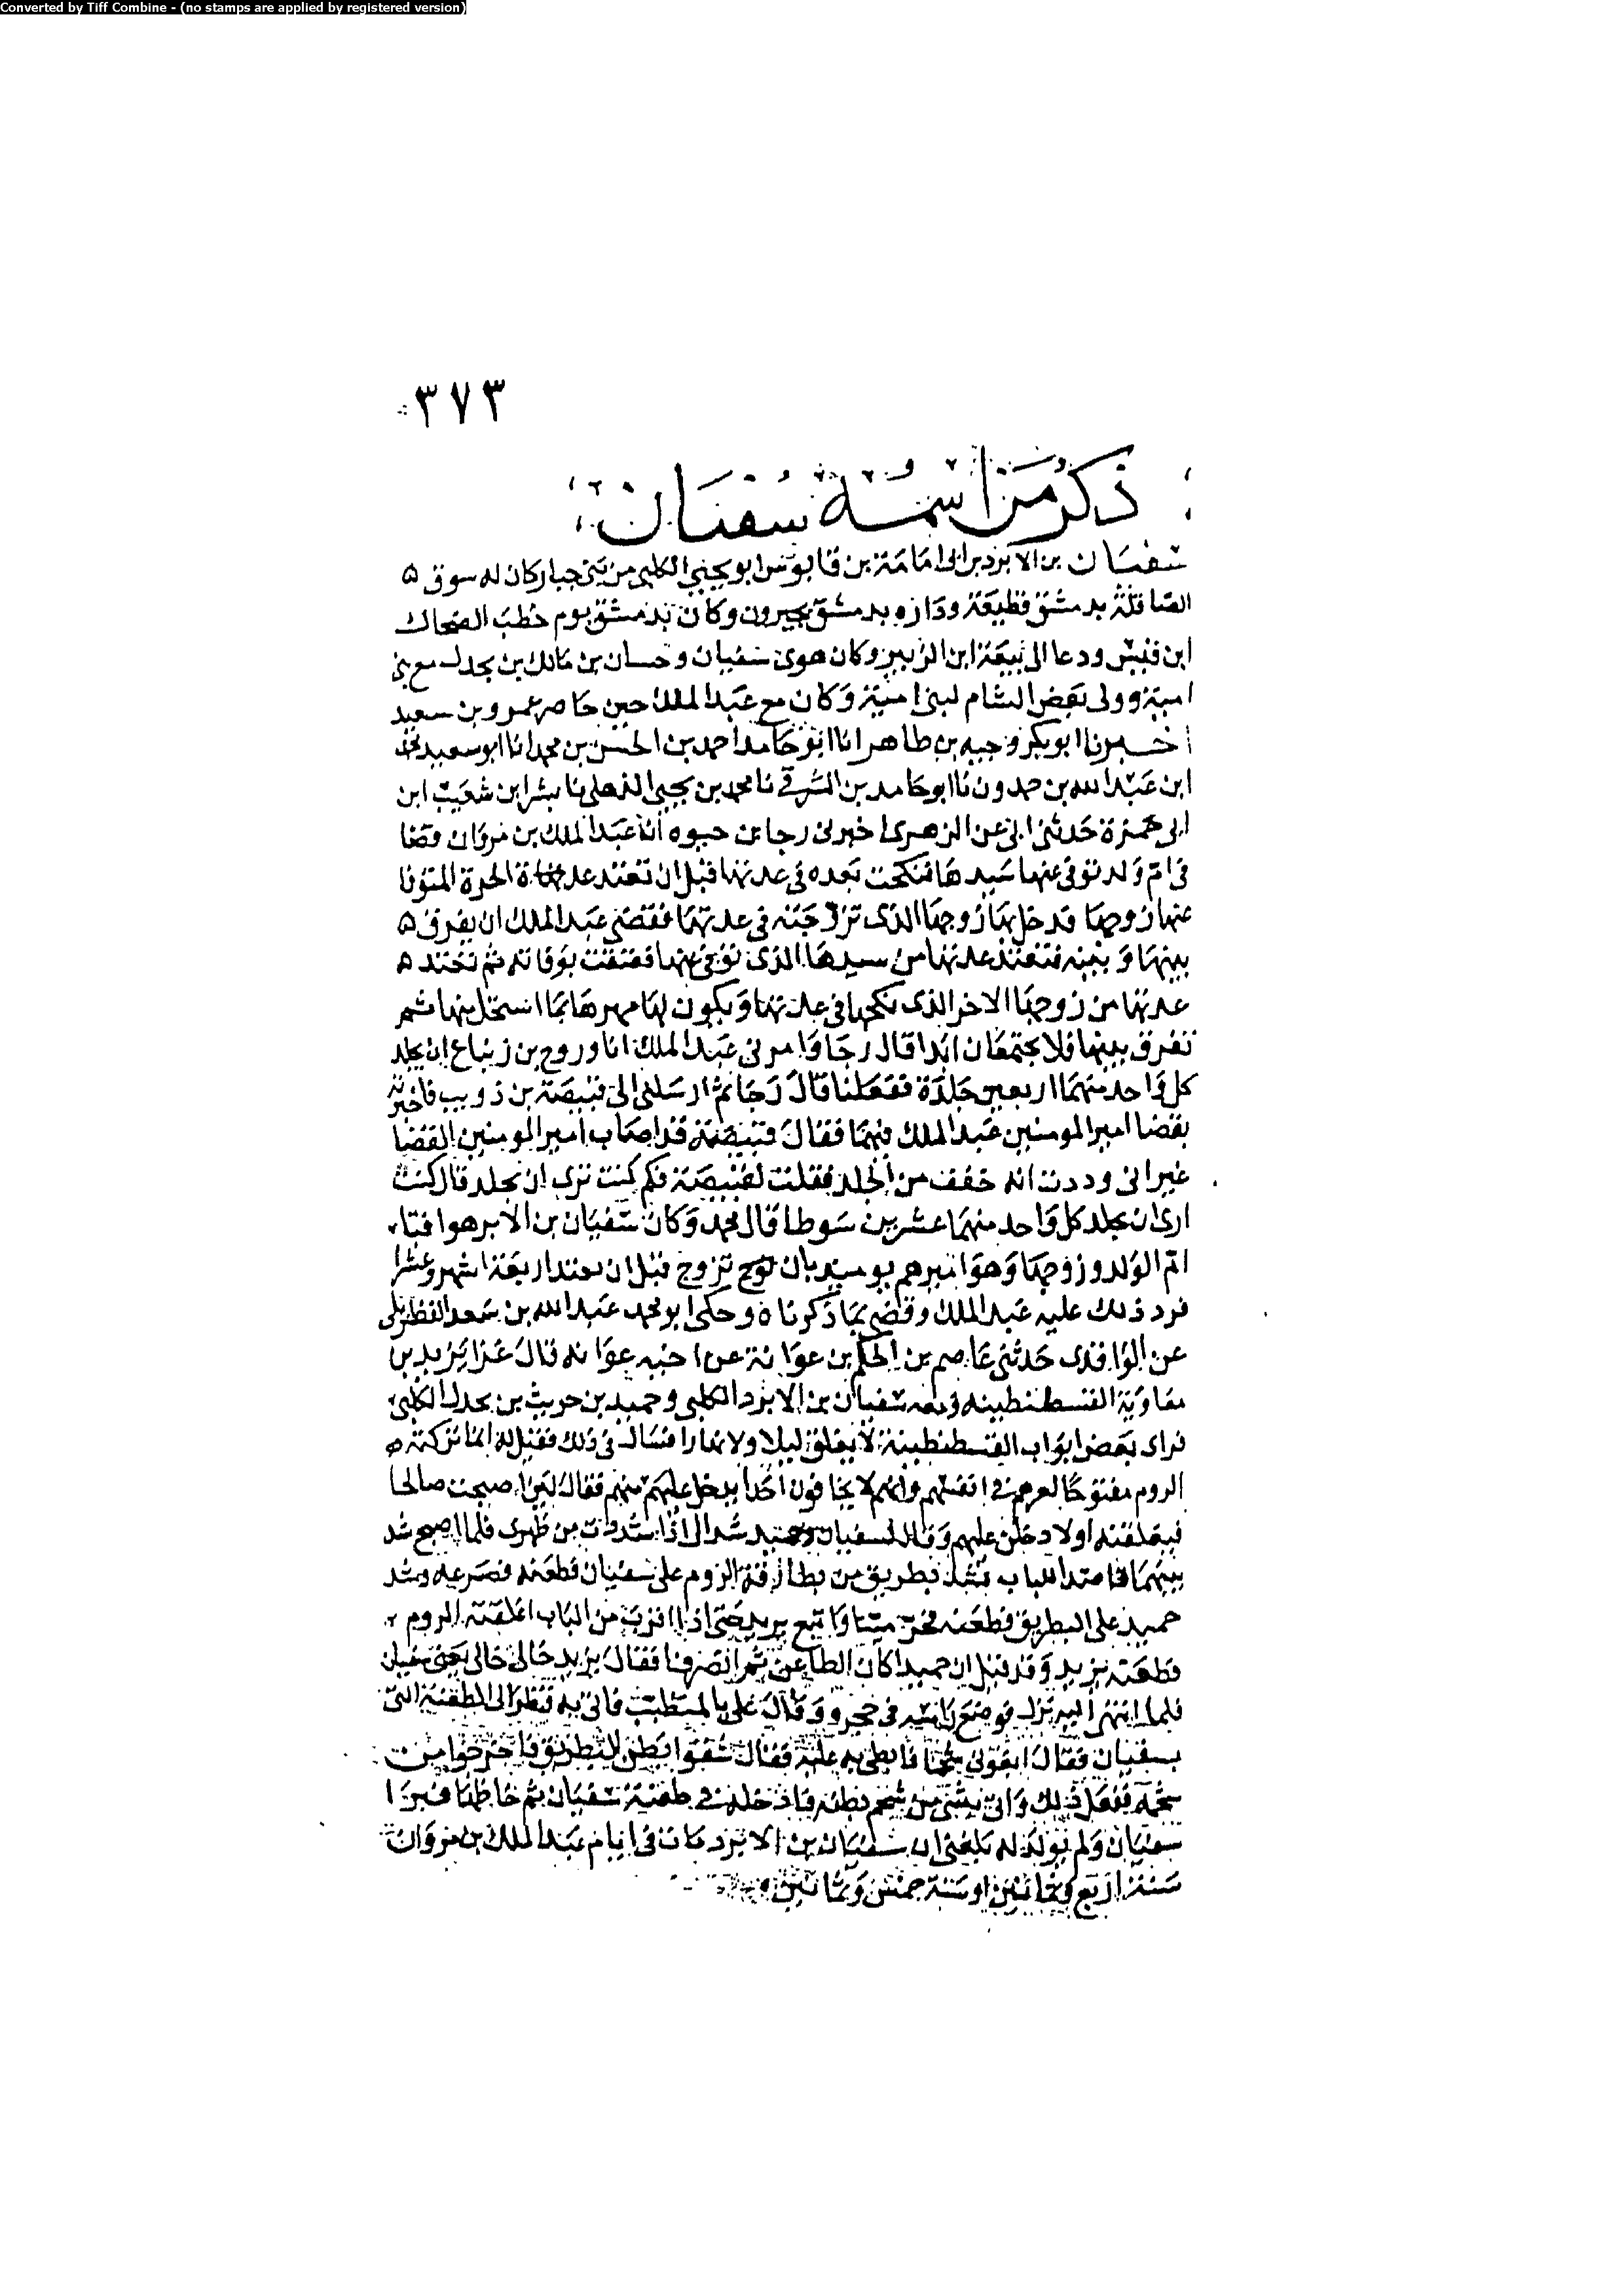 Converted by Tiff Combine - (no stamps are applied by registered version)
٣٧٣
ذكر من اسمه سفيان
سفيان بن الابرد بن ابى امامة بن قابوس ابو يحيى الكلبى من بنى جبار كان له سوق
الصاقلة بدمشق قطيعة وداره بدمشق بجيرون وكان بدمشق يوم خطب الضحاك
ابن قيس ودعا الى بيعة ابن الزبير وكان هوى سفيان وحسان بن مالك بن بجدل مع بنى
امية وولى بعض الشام لبنى امية وكان مع عبد الملك حين حاصر عمرو بن سعيد
اخبرنا ابو بكر وجيه بن طاهر انا ابو حامد احمد بن الحسن بن محمد انا ابو سعيد محمد
ابن عبد الله بن حمدون نا ابو حامد بن الشرقى نا محمد بن يحيى الذهلى نا بشر ابن شعيب ابن
ابى حمزة حدثنى ابى عن الزهرى اخبرنى رجا بن حيوه ان عبد الملك بن مروان قضا
فى ام ولد توفى عنها سيدها فنكحت بعده فى عدتها قبل ان تعتد عدة الحرة المتوفا
عنها زوجها قد دخل بها زوجها الذى تزوجته فى عدتها فقضى عبد الملك ان يفرق
بينها وبينه فتعتد عدتها من سيدها الذى توفى عنها فعتقت بوفاته ثم تعتد
عدتها من زوجها الاخر الذى نكحها فى عدتها ويكون لها مهرها بما استحل منها ثم
تفرق بينها فلا يجتمعان ابدا قال رجا وامرنى عبد الملك انا وروح بن زنباع ان يجلد
كل واحد منهما اربعين جلدة ففعلنا قال رجا ثم ارسلنى الى قبيصة بن ذويب فاخبرته
بقضا امير المومنين عبد الملك فيهما فقال قبيصة قد اصاب امير المومنين القضا
غير انى وددت انه خفف من الجلد فقلت لقبيصة فكم كنت ترى ان يجلد قال كنت
ارى ان يجلد كل واحد منهما عشرين سوطا قال محمد وكان سفيان بن الابرد هو افتا
ام الولد وزوجها وهو اميرهم يوميذ بان تزوج قبل ان تعتد اربعة اشهر وعشرا
فرد ذلك عليه عبد الملك وقضى بما ذكرناه وحكى ابو محمد عبد الله بن سعد القطربلى
عن الواقدى حدثنى عاصم بن الحكم بن عوانة عن اخيه عوانه قال غزا يزيد بن
معاوية القسطنطينه ومعه سفيان بن الابرد الكلبى وحميد بن حريث بن بحدل الكلبى
فراى بعض ابواب القسطنطينية لا يغلق ليلا ولا نهارا فسال فى ذلك فقيل له انما تركته
الروم مفتوحا لعزهم فى انفسهم وانهم لا يخافون احدا يدخل عليهم منهم فقال لين اصبحت صالحا
فيغلقنه او لادخلن عليهم وقال لسفيان وحميد شدا لى اذا شددت من ظهرى فلما اصبح شد
بينهما قاصدا للباب فشد بطريق من بطارقة الروم على سفيان فطعنه فصرعه وشد
حميد على البطريق فطعنه فخر ميتا واتبع يزيد حتى اذا اقترب من الباب اغلقته الروم
فطعنه يزيد وقد قيل ان حميدا كان الطاعن ثم انصرفنا فقال يزيد خالى خالى يعنى سفيان
فلما انتهى اليه نزل فوضع راسه فى حجره وقال على بالمتطبب فاتى به فنظر الى الطعنة التى
بسفيان فقال ابغونى شحما فابطى به عليه فقال شقوا بطن البطريق فاخرجوا من
شحمه ففعل ذلك واتى بشى من شحم بطنه فادخله فى طعنة سفيان ثم خاطها فبرا
سفيان ولم يولد له بلغنى ان سفيان بن الابرد مات فى ايام عبد الملك بن مروان
سنة اربع وثمانين او سنة خمس وثمانين